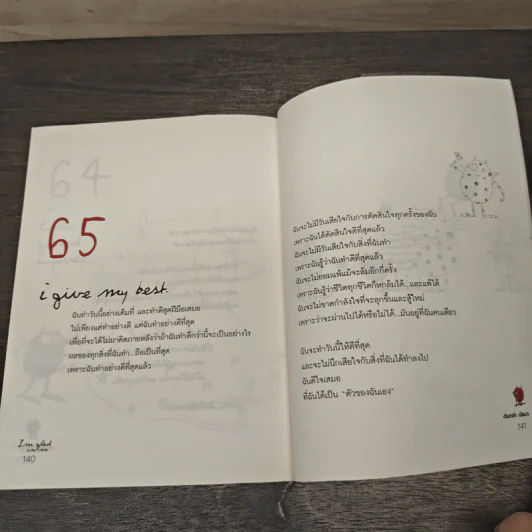 64
65
i give my best.
ฉันทำวันนี้อย่างเต็มที่ และทำดีสุดฝีมือเสมอ
ไม่เพียงแต่ทำอย่างดี แต่ฉันทำอย่างดีที่สุด
เพื่อที่จะได้ไม่มาคิดภายหลังว่าถ้าฉันทำดีกว่านี้จะเป็นอย่างไร
ผลของทุกสิ่งที่ฉันทำ...ถือเป็นที่สุด
เพราะฉันทำอย่างดีที่สุดแล้ว
I'm glad
140
ฉันจะไม่มีวันเสียใจกับการตัดสินใจทุกครั้งของฉัน
เพราะฉันได้ตัดสินใจดีที่สุดแล้ว
ฉันจะไม่มีวันเสียใจกับสิ่งที่ฉันทำ
เพราะฉันรู้ว่าฉันทำดีที่สุดแล้ว
ฉันจะไม่ยอมแพ้แม้จะล้มอีกกี่ครั้ง
เพราะฉันรู้ว่าชีวิตทุกชีวิตก็พลาดล้มได้...และแพ้ได้
ฉันจะไม่ขาดกำลังใจที่จะลุกขึ้นและสู้ใหม่
เพราะว่าจะผ่านไปได้หรือไม่ได้...มันอยู่ที่ฉันคนเดียว
ฉันจะทำวันนี้ให้ดีที่สุด
และจะไม่นึกเสียใจกับสิ่งที่ฉันได้ทำลงไป
ฉันดีใจเสมอ
ที่ฉันได้เป็น "ตัวของฉันเอง"
141